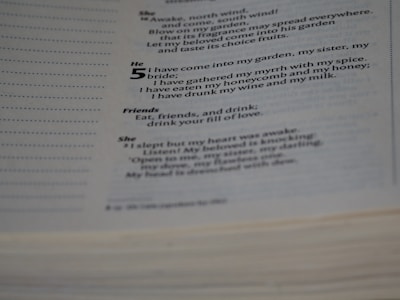 She
16 Awake, north wind,
and come, south wind!
Blow on my garden,
that its fragrance may spread everywhere.
Let my beloved come into his garden
and taste its choice fruits.
He
5 I have come into my garden, my sister, my
bride;
I have gathered my myrrh with my spice.
I have eaten my honeycomb and my honey;
I have drunk my wine and my milk.
Friends
Eat, friends, and drink;
drink your fill of love.
She
2 I slept but my heart was awake.
Listen! My beloved is knocking:
"Open to me, my sister, my darling,
my dove, my flawless one.
My head is drenched with dew,